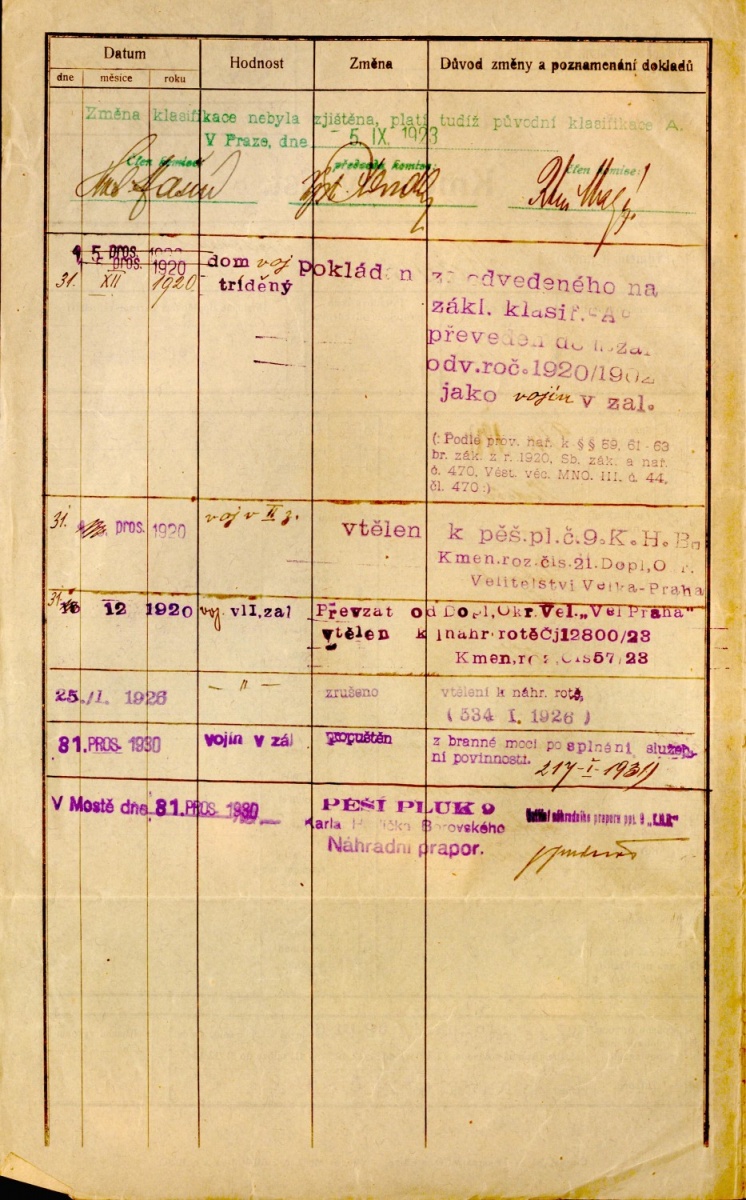 Datum Hodnost Změna Důvod změny a poznamenání dokladů
dne měsíce roku
Změna klasifikace nebyla zjištěna, platí tudíž původní klasifikace A.
V Praze, dne 5 IX. 1923
Člen komise: předseda komise: Člen komise:
15 pros. 1920
pros. 1920
31. XII 1920
dom voj
tříděný
Pokládán za odvedeného na
zákl. klasif. "A"
převeden do
odv. roč. 1920/1902
jako vojín v zal.
(: Podle prov. nař. k §§ 59, 61-63
br. zák. z r. 1920, Sb. zák. a nař.
č. 470, Věst. věc. MNO. III. č. 44,
čl. 470 :)
31. pros. 1920 voj v II z. vtělen k pěš. pl. č. 9. K. H. Bo
Kmen. roz. čís. 21. Dopl, O
Velitelství Velká-Praha
31. 12 1920 voj. v II, zal Převzat od Dopl, Okr. Vel. „Vel Praha"
vtělen k náhr. rotě Čj 12800/23
Kmen, roz, čís 57/23
25. /I. 1926 — " — zrušeno vtělení k náhr. rotě,
(534 I. 1926)
31. PROS. 1930 vojín v zál propuštěn z branné moci po splnění služeb-
ní povinnosti. 217-I-1931)
V Mostě dne 31. PROS. 1930 PĚŠÍ PLUK 9
Karla Havlíčka Borovského
Náhradní prapor.
Velitel náhradního praporu ppl. 9 „K.H.B"